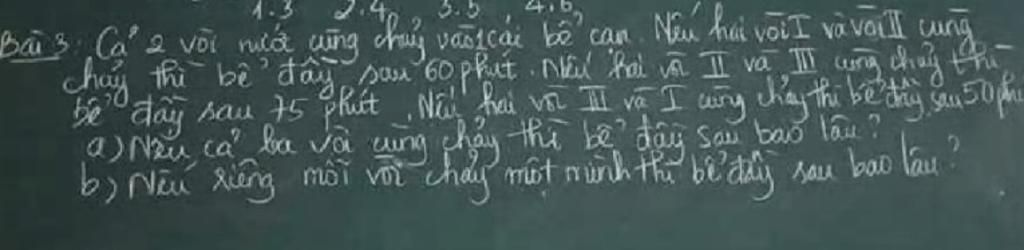 1.3 2.4 3.5 4.6
Bài 3: Cả 2 vòi nước cùng chảy vào 1 cái bể cạn. Nếu hai vòi I và vòi II cùng
chảy thì bể đầy sau 60 phút. Nếu hai vòi II và III cùng chảy thì
bể đầy sau 75 phút. Nếu hai vòi III và I cùng chảy thì bể đầy sau 50 phú
a) Nếu cả ba vòi cùng chảy thì bể đầy sau bao lâu?
b) Nếu riêng mỗi vòi chảy một mình thì bể đầy sau bao lâu?